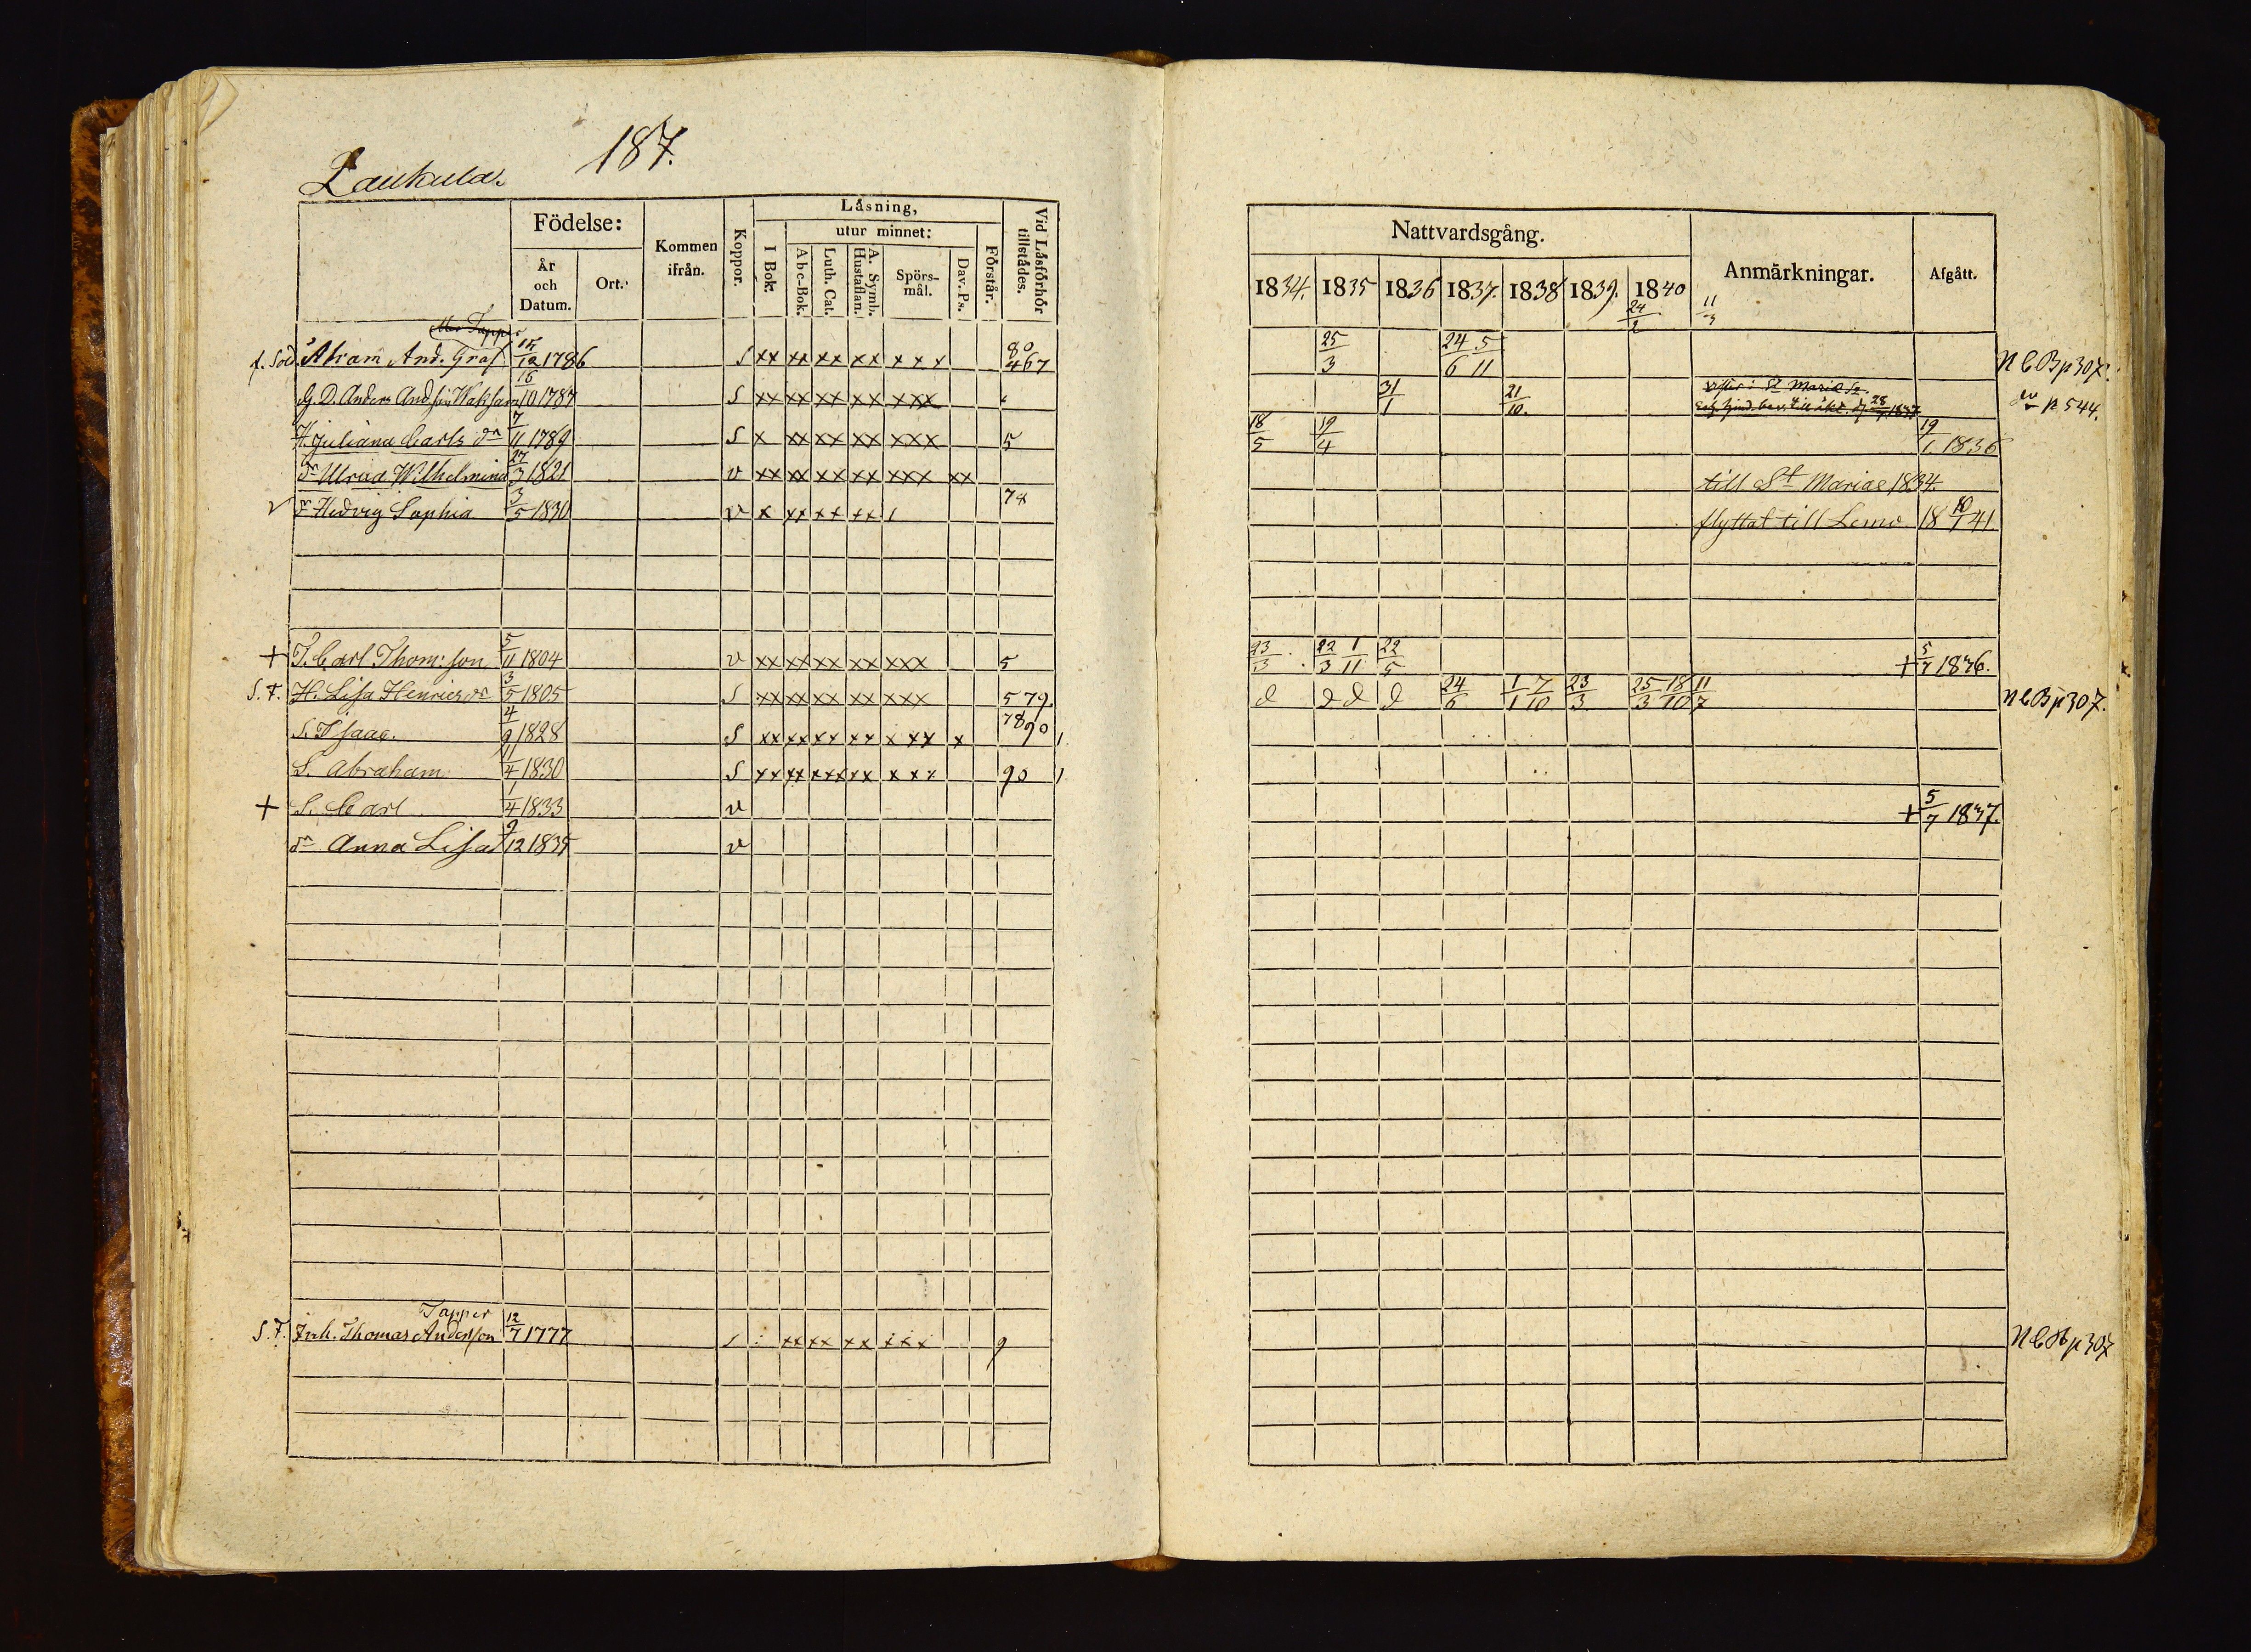 187.
Laukula.
Födelse:
År och Datum.
Ort.
Kommen ifrån.
Koppor.
Läsning,
I Bok.
utur minnet:
Abc-Bok.
Luth. Cat.
A. Symb. Hustaflan.
Spörs-mål.
Dav. Ps.
Förstår.
Vid Läsförhör tillstädes.
Nattvardsgång.
1834. 1835 1836 1837. 1838 1839. 1840
Anmärkningar.
Afgått.
24/2 11/3
f. Sold. Abram And. Graf 15/12 1786 S xx xx xx xx xxx 80 467 25/3 24/6 5/11 NCB p 307.
G. D. Anders And 16/10 1787 S xx xx xx xx xxx 31/1 21/10. 28/ 1837 p 544.
H. Juliana Carls dr 7/11 1789 S x xx xx xx xxx 5 18/5 19/4 19/1 1836
dr Ulrica Wilhelmina 27/3 1821 v xx xx xx xx xxx xx till St Mariae 1834.
v dr Hedvig Sophia 3/5 1830 v x xx xx xx 1 78 flyttat till Lemo 18 10/1 41.
+ T. Carl Thom:son 5/11 1804 v xx xx xx xx xxx 5 23/3 22/3 1/11 22/5 + 5/7 1836.
S. T. H. Lisa Henricsdr 3/5 1805 S xx xx xx xx xxx 579. d d d d 24/6 1/1 7/10 23/3 25/3 18/10 11/7 NCB p 307.
S. Isaac. 4/9 1828 S xx xx xx xx xxx x 7890 1
S. Abraham 11/4 1830 S xx xx xxx xx xxx 90 1
+ S. Carl 1/4 1833 v + 5/7 1837.
dr Anna Lisa 9/12 1835 v
Tapper
S. T. Inh. Thomas Andersson 12/7 1777 S xx xx xx xxx 9 NCB p 307